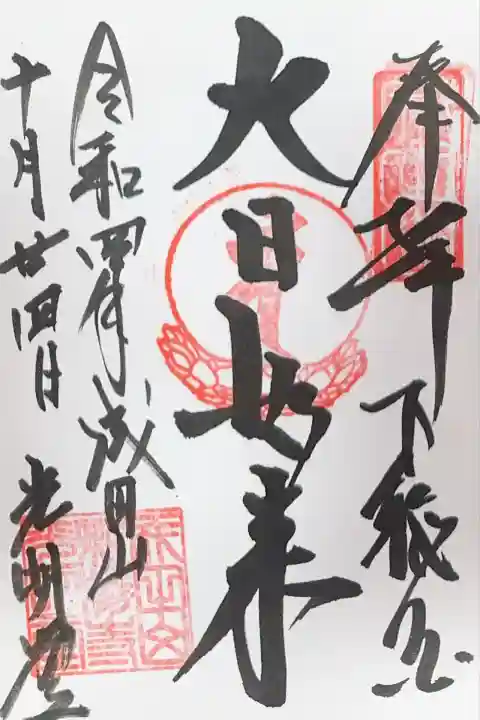 奉拝 下総国
大日如来
令和四年 成田山
十月廿四日 光明堂